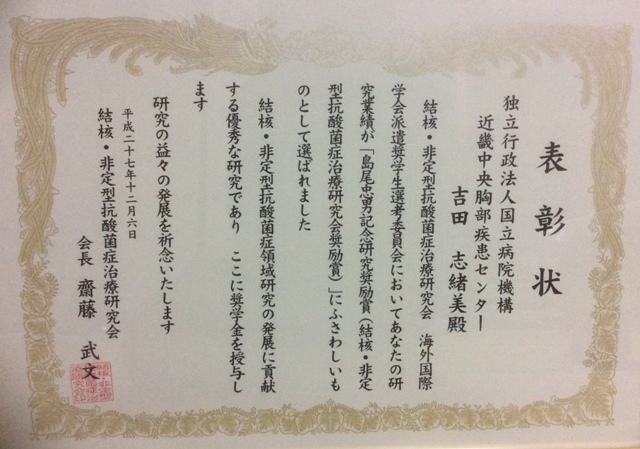 表彰状
独立行政法人国立病院機構
近畿中央胸部疾患センター
吉田 志緒美殿
結核・非定型抗酸菌症治療研究会 海外国際
学会派遣奨学生選考委員会においてあなたの研
究業績が「島尾忠男記念研究奨励賞(結核・非定
型抗酸菌症治療研究会奨励賞)」にふさわしいも
のとして選ばれました
結核・非定型抗酸菌症領域研究の発展に貢献
する優秀な研究であり ここに奨学金を授与し
ます
研究の益々の発展を祈念いたします
平成二十七年十二月六日
結核・非定型抗酸菌症治療研究会
会長 齋藤 武文